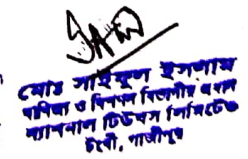 মোঃ সাইফুল ইসলাম
বাণিজ্য ও বিপণন বিভাগীয় প্রধান
ন্যাশনাল টিউবস লিমিটেড
টংগী, গাজীপুর